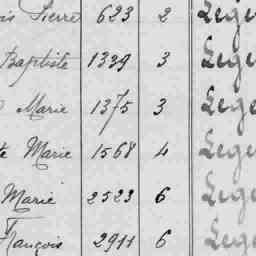 Pierre 623 2 Lege
Baptiste 1339 3 Lege
Marie 1375 3 Lege
Marie 1568 4 Lege
Marie 2523 6 Lege
François 2911 6 Lege